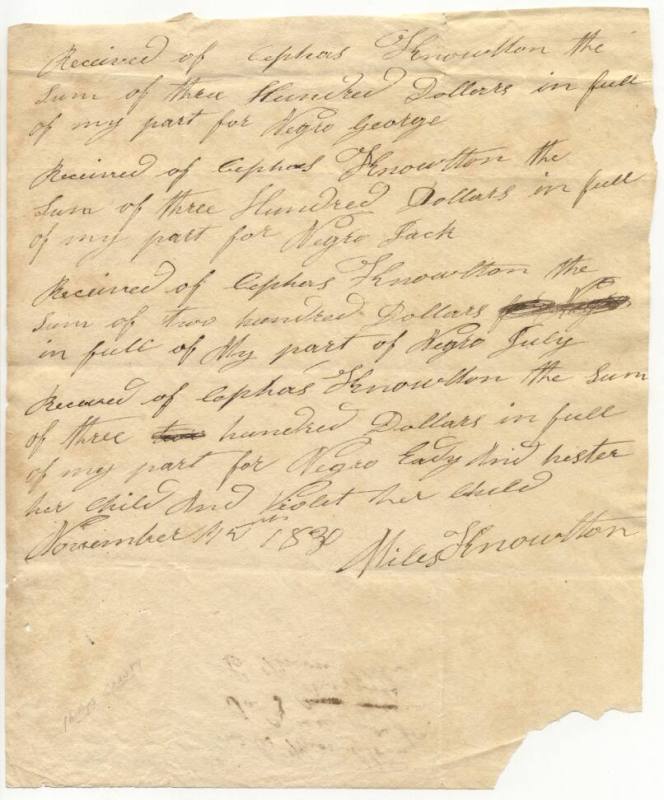 Received of Cephas Knowlton the
Sum of three Hundred Dollars in full
of my part for Negro George
Received of Cephas Knowlton the
Sum of three Hundred Dollars in full
of my part for Negro Jack
Received of Cephas Knowlton the
Sum of two hundred Dollars
in full of My part of Negro July
Received of Cephas Knowlton the Sum
of three two hundred Dollars in full
of my part for Negro Eady And hester
her Child And Violet her Child
November 1830
Miles Knowlton